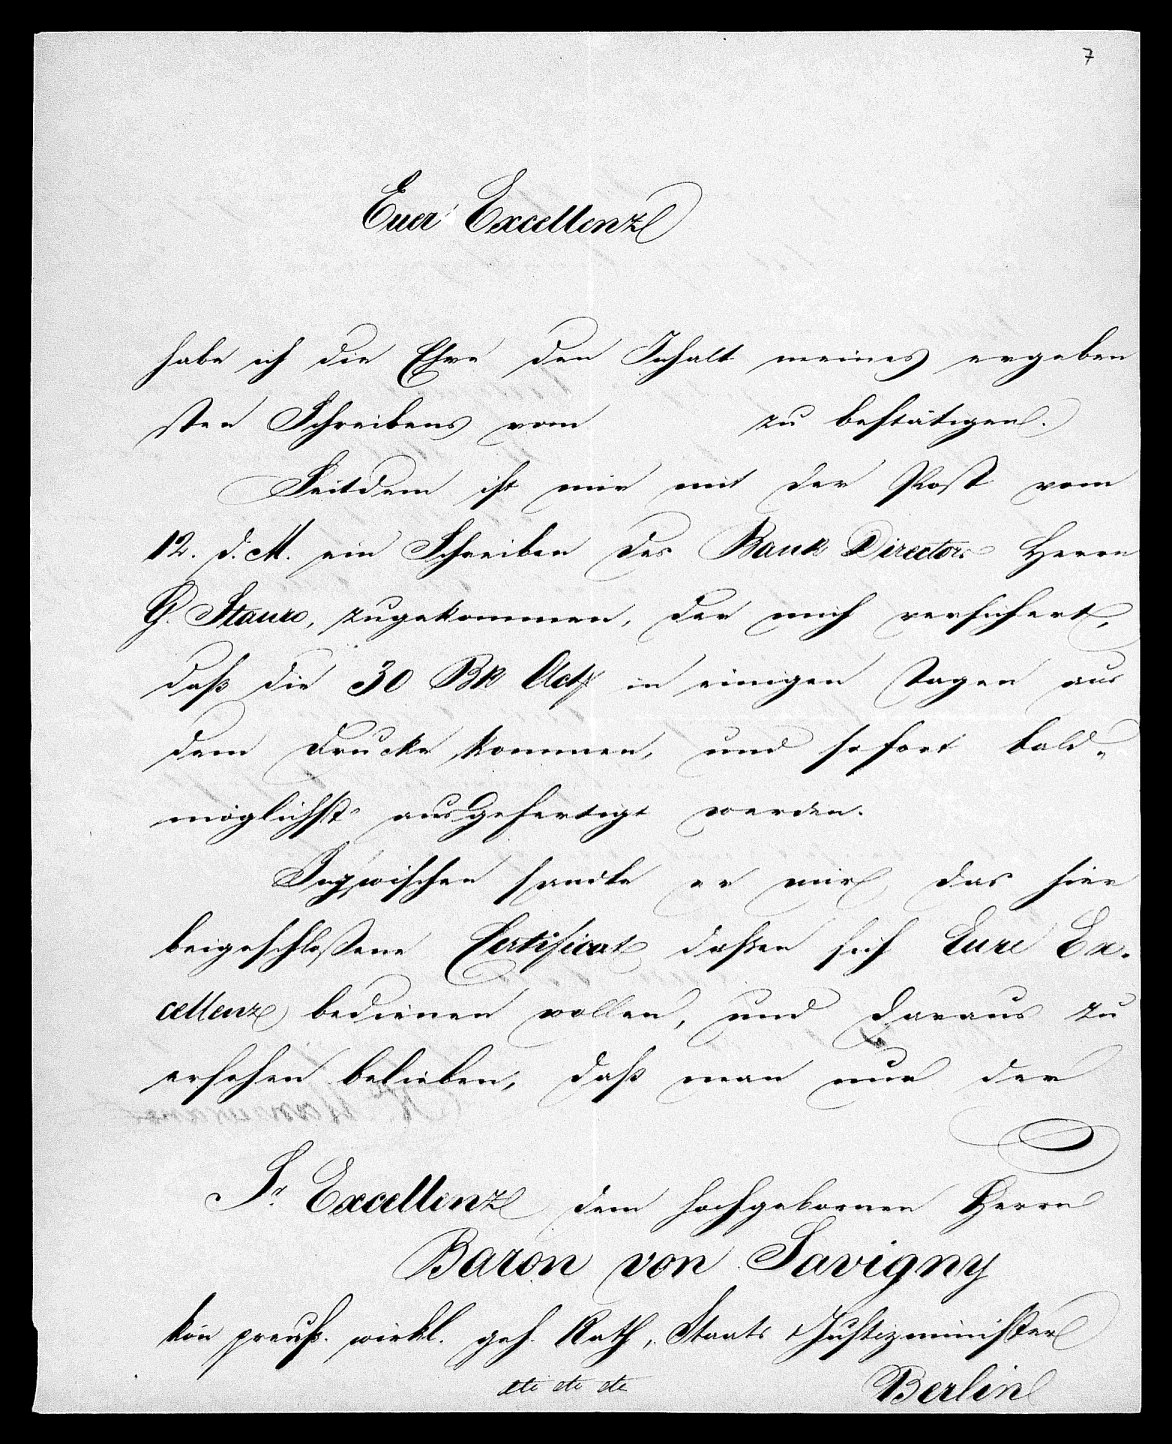 7
Euer Excellenz
habe ich die Ehre den Inhalt meines ergeben
sten Schreibens vom zu bestätigen.
Seitdem ist mir mit der Post vom
12. d. M. ein Schreiben des Bank Directors Herrn
G. Stauro, zugekommen, der mich versichert,
daß die 30 Bk Act. in einigen Tagen aus
dem Drucke kommen, und sofort bald-
möglichst ausgefertigt werden.
Inzwischen sandte er mir das hier
beigeschloßene Certificat deßen sich Eure Ex-
cellenz bedienen wollen, und daraus zu
ersehen belieben, daß man nur der
Sr. Excellenz dem hochgebornen Herrn
Baron von Savigny
kön preuß. wirkl. geh. Rath, Staats & Justizminister
etc etc etc
Berlin